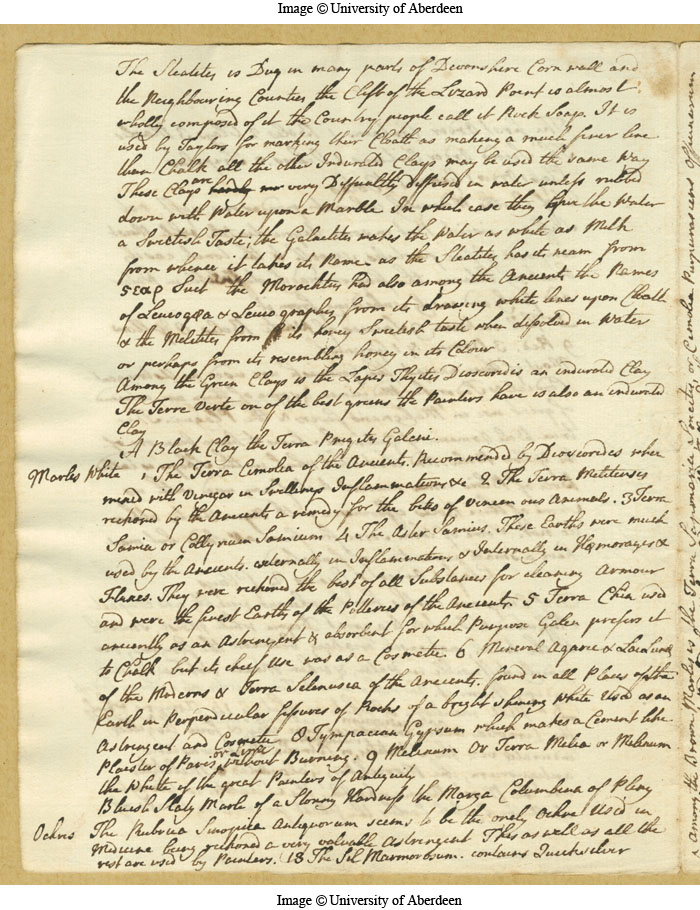 Image © University of Aberdeen
The Steatites is Dug in many parts of Devonshire Cornwall and
the Neighbouring Counties the Clift of the Lizard Point is almost
wholly composed of it the Country people call it Rock Soap. It is
used by Taylors for marking their Cloath as making a much finer line
than Chalk all the other Indurated Clays may be used the same way
These Clays are very Difficultly diffused in water unless rubbed
down with Water upon a Marble In which case they give the Water
a Sweetish Taste; the Galactites makes the Water as white as Milk
from whence it takes its Name as the Steatites has its neam from
Suet the Morochites had also among the Ancients the Names
of Leucogea & Leucographis from its drawing white lines upon Cloath
& the Melitites from its honey Sweetish taste when dissolved in Water
or perhaps from its resembling honey in its Colour
Among the Green Clays is the Lapis Thyites Dioscoridis an indurated Clay
The Terre Verte on of the best greens the Painters have is also an indurated
Clay
A Black Clay the Terra Pnigitis Galeni.
Marles White 1 The Terra Cimolia of the Ancients. Recommended by Dioscorides when
mixed with Vinegar in Swellings Inflammations &c 2 The Terra Melitensis
reckoned by the Ancients a remedy for the bites of Vineemous Animals. 3 Terra
Samia or Collyrium Samium 4 The Aster Samius. These Earths were much
used by the Ancients. externally in Inflamations & Internally in Hæmorages &
Fluxes. They were reckoned the best of all Substances for cleaning Armour
and were the finest Earths of the Potteries of the Ancients. 5 Terra Chia used
anciently as an Astringent & absorbent for which Purpose Galen prefers it
to Chalk but its cheif Use was as a Cosmetic. 6 Mineral Agaric & Lac Lunæ
of the Moderns & Terra Selenusia of the Ancients. found in all Places of the
Earth in Perpendicular fissures of Rocks of a bright shining White Used as an
Astringent and Cosmetic 8 Tympacian Gypsum which makes a Cement like
Plaister of Paris without Burning. 9 Melinum Or Terra Melia or Melinum
the White of the great Painters of Antiquity
Blueish Slaty Marle of a Stoney Hardness the Marga Columbina of Pliny
Ochres The Rubrica Sinopica Antiquorum seems to be the onely Ochre Used in
Medicine being reckoned a very valuable Astringent This as well as all the
rest are used by Painters. 18 The Sil Marmorosum. contains Quicksilver
among the Brown Marles is the Terra
Image © University of Aberdeen